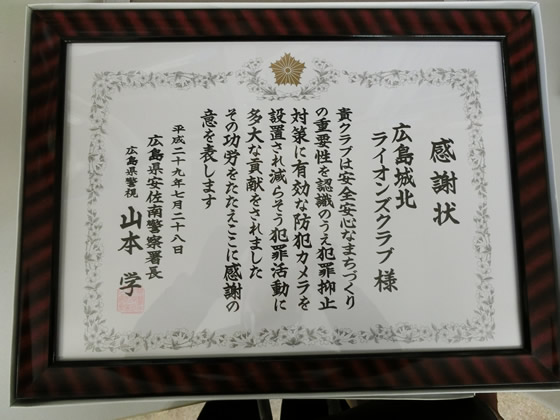 感謝状
広島城北
ライオンズクラブ 様
貴クラブは安全安心なまちづくり
の重要性を認識のうえ犯罪抑止
対策に有効な防犯カメラを
設置され減らそう犯罪活動に
多大な貢献をされました
その功労をたたえここに感謝の
意を表します
平成二十九年七月二十八日
広島県安佐南警察署長
広島県警視 山本 学